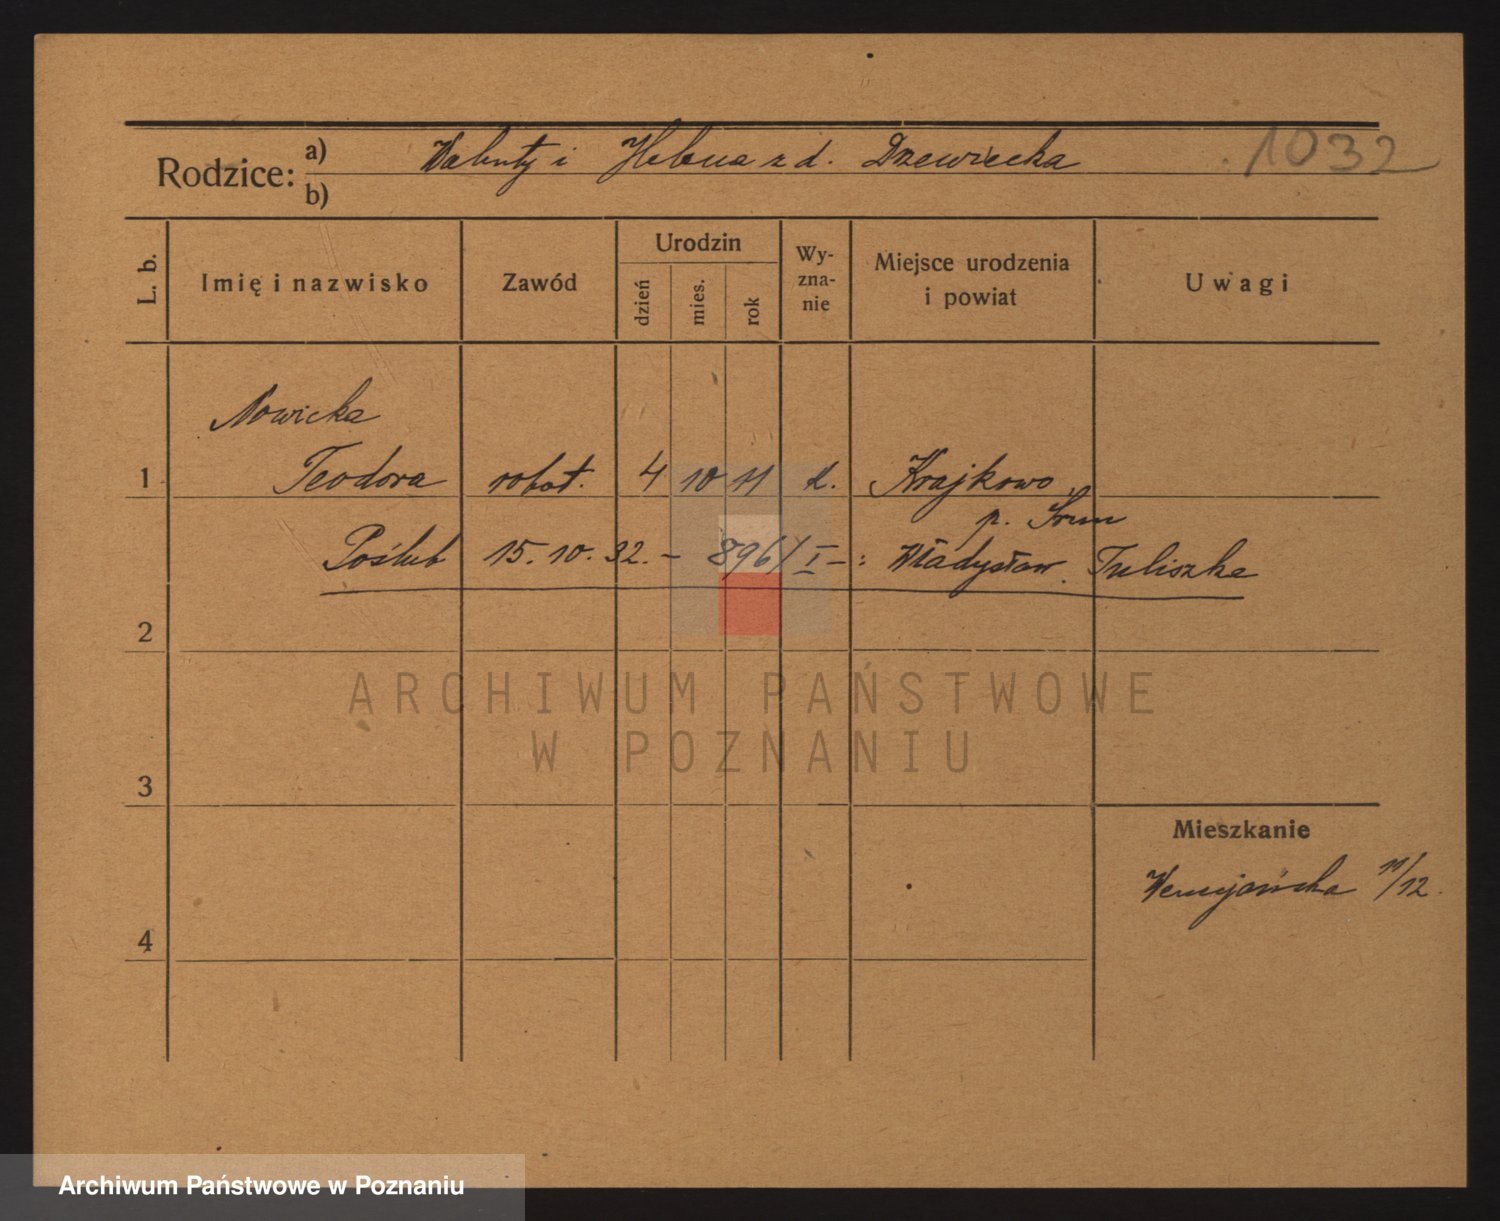 Rodzice: a) Walenty i Helena z d. Dzewiecka 1032
b)
L. b. Imię i nazwisko Zawód Urodzin dzień mies. rok Wy-zna-nie Miejsce urodzenia i powiat Uwagi
Nowicka
1 Teodora robot. 4 10 11 k. Krajkowo
p. Śrem
Poślub 15.10.32. - 896/I - : Władysław Tuliszka
2
3
Mieszkanie
11/12.
4
ARCHIWUM PAŃSTWOWE
W POZNANIU
Archiwum Państwowe w Poznaniu